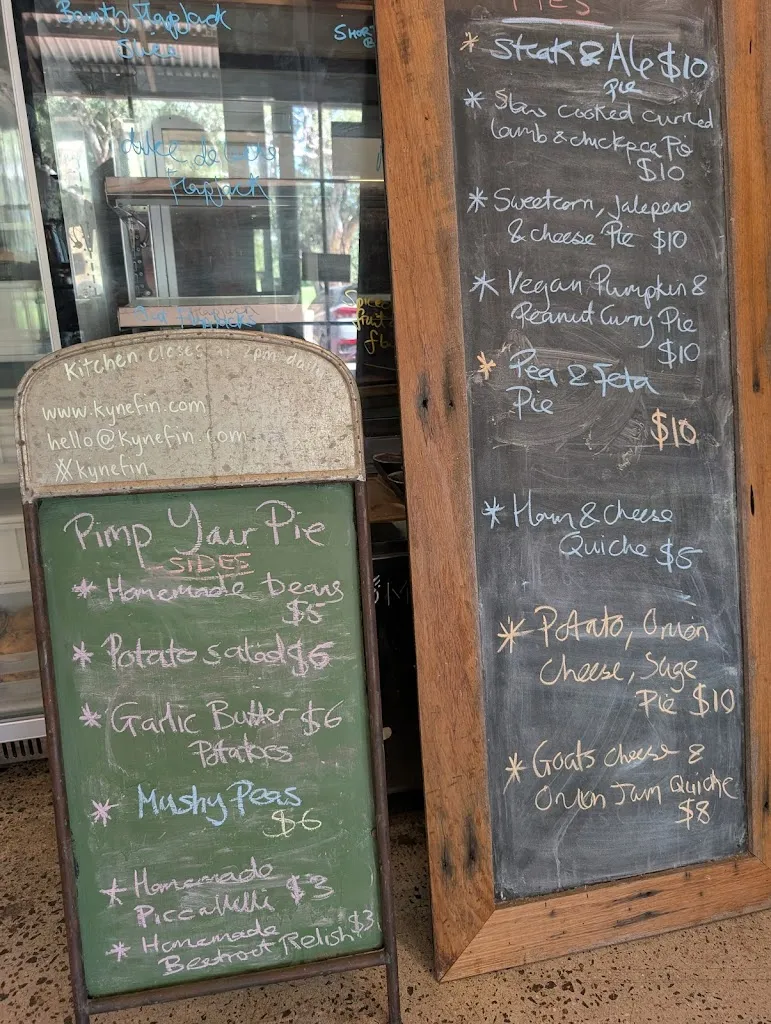 Bounty Flapjack
Slice
dulce de leche
Flapjack
Kitchen closes at 2pm daily
www.kynefin.com
hello@kynefin.com
kynefin
Pimp Your Pie
SIDES
* Homemade beans
$5
* Potato salad $6
* Garlic Butter $6
Potatoes
* Mushy Peas
$6
* Homemade
Piccavilli $3
* Homemade
Beetroot Relish $3
PIES
* Steak & Ale $10
Pie
* Slow cooked curried
lamb & chickpea Pie
$10
* Sweetcorn, Jalapeno
& cheese Pie $10
* Vegan Pumpkin &
Peanut Curry Pie
$10
* Pea & Feta
Pie
$10
* Ham & Cheese
Quiche $5
* Potato, Onion
Cheese, Sage
Pie $10
* Goats cheese &
Onion Jam Quiche
$8